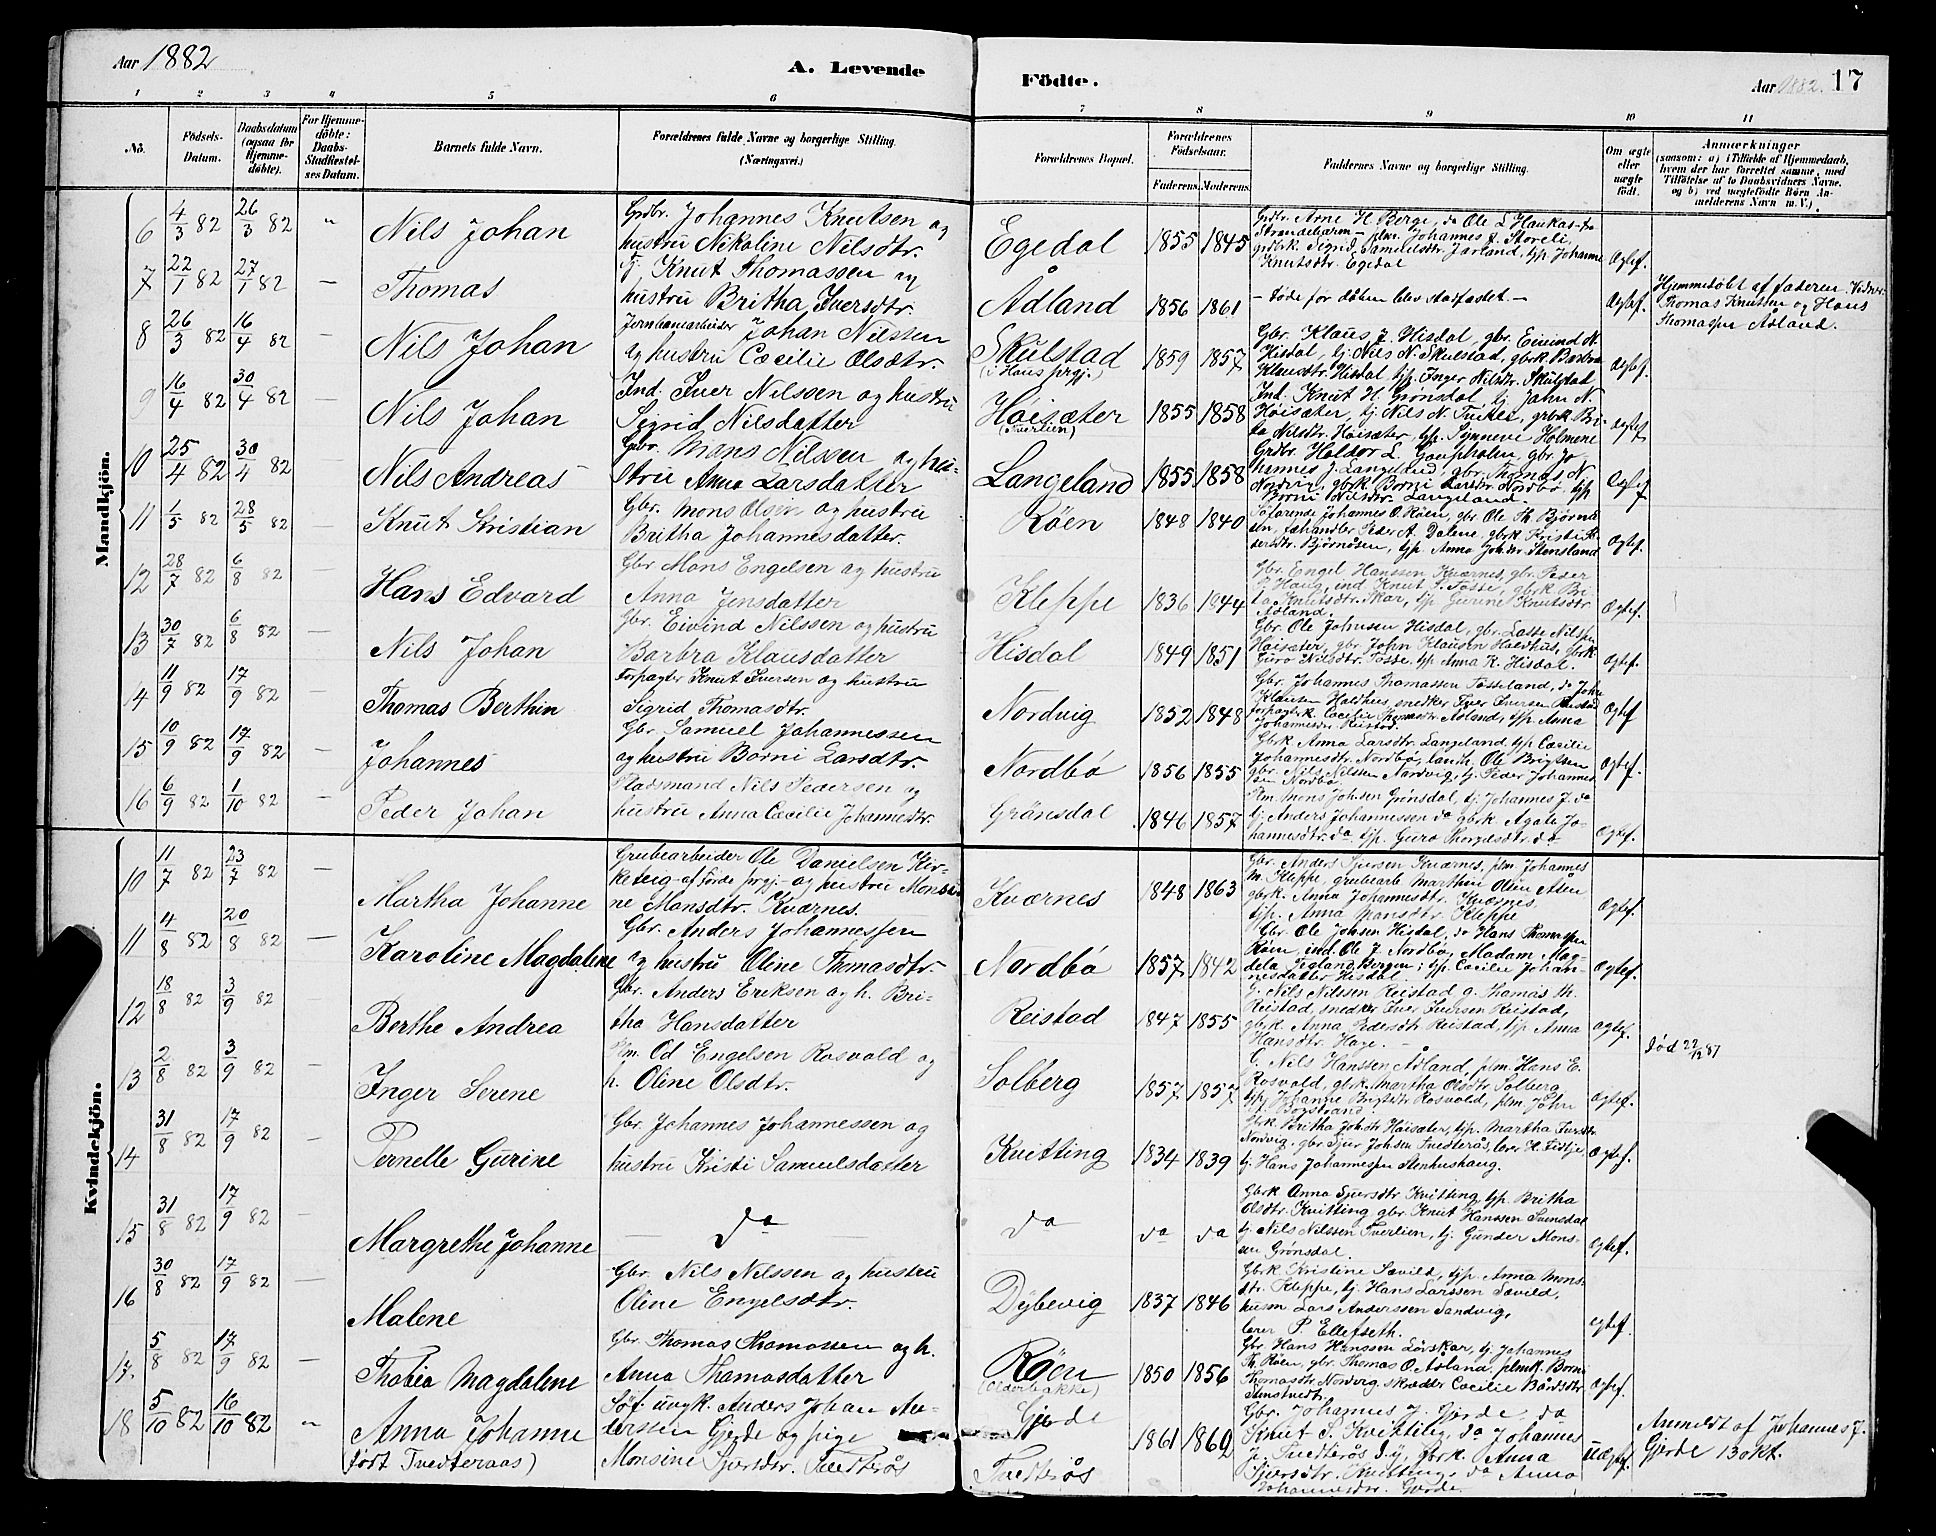 Aar 1882
A. Levende
Födte.
Aar 1882. 17
1 2 3 4 5 6 7 8 9 10 11
No.
Födsels-Datum.
Daabsdatum (ogsaa for Hjemme-döbte).
For Hjemme-döbte: Daabs-Stadfæstel-ses Datum.
Barnets fulde Navn.
Forældrenes fulde Navne og borgerlige Stilling. (Næringsvei.)
Forældrenes Bopæl.
Forældrenes Födselsaar.
Faderens. Moderens.
Faddernes Navne og borgerlige Stilling.
Om ægte eller uægte födt.
Anmærkninger
(saasom: a) i Tilfælde af Hjemmedaab, hvem der har forrettet samme, med Tilföielse af to Daabsvidners Navne, og b) ved uægtefödte Börn An-melderens Navn m. V.).
Mandkjön.
6 4/3 82 26/3 82 " Nils Johan
Grdbr. Johannes Knutsen og
hustru Nikoline Nilsdtr.
Egedal 1855 1845
Grdbr. Arne H. Berge, do Ole L Haukas fra
Strandebarm - plm. Johannes J. Storeli,
grdbrk. Sigrid Samuelsdtr. Jarland, tjp. Johanne
Knutsdtr. Egedal
Ægtef.
7 22/1 82 27/1 82 — Thomas
tj. Knut Thomassen og
hustru Britha Iversdtr.
Ådland 1856 1861
- døde før dåben blev stadfæstet. -
Ægtef.
Hjemmedöbt af faderen. Vidner:
Thomas Knutsen og Hans
Thomassen Ådland.
8 26/3 82 16/4 82 — Nils Johan
Jernbanearbeider Johan Nilssen
og hustru Cæcilie Olsdtr.
Skulstad 1859 1857
(i Haus prgj.)
Gbr. Klaus J. Hisdal, gbr. Eivind N.
Hisdal, tj. Nils N. Skulstad, gbrk. Barbra
Klausdtr. Hisdal tjp. Inger Nilsdtr. Skulstad
Ægtef.
9 16/4 82 30/4 82 — Nils Johan
Ind. Iver Nilssen og hustru
Sigrid Nilsdatter
Höisæter 1855 1858
(Tverlien)
Ind. Knut H. Grönsdal, tj. John N.
Höisæter, tj. Nils N. , grbrk. Bri-
ta Nilsdtr. Höisæter, tjp. Synneve Holmene
Ægtef
10 25/4 82 30/4 82 — Nils Andreas
Gbr. Mons Nilssen og hu-
stru Anna Larsdatter
Langeland 1855 1858
Grdbr. Haldor L. Gaupholm, gbr. Jo-
hannes J. Langeland, gbr. Thomas N
Nordvig, gbrk Borni Larsdtr. Nordbö tjp
Borni Nilsdtr. Langeland
Ægtef
11 1/5 82 28/5 82 — Knut Kristian
Gbr. Mons Olsen og hustru
Britha Johannesdatter.
Röen 1848 1840
Söfarende Johannes O. Röen, gbr Ole Th. Bjørnå
sen, Peder A. Dalene, gbrk. Kristi
Bjørnåsen, tjp. Anna Stensland
Ægtef.
12 28/7 82 6/8 82 — Hans Edvard
Gbr Mons Engelsen og hustru
Anna Jensdatter
Kleppe 1836 1844
Gbr. Engel Hanssen Kværnes, gbr. Peder
P. Haug, ind Knut S. Fosse, gbrk Bri
ta Knutsdtr. Skar, tjp Gurine Knutsdtr
Ådland.
Ægtef.
13 30/7 82 6/8 82 — Nils Johan
Gbr. Eivind Nilssen og hustru
Barbra Klausdatter
Hisdal 1849 1851
Gbr. Ole Johnsen Hisdal, gbr. Lasse Nilssen
Höisæter, gbr John Klausen Haldhus, gbrk
Guro Nilsdtr. Fosse, tjp Anna K. Hisdal.
Ægtef.
14 11/9 82 17/9 82 — Thomas Berthin
Forpagter Knut Iversen og hustru
Sigrid Thomasdtr.
Nordvig 1852 1848
Gbr. Johannes Thomassen Fosseland, do John
Klausen Haldhus, snedker Iver Iversen Reistad
forpagterk. Cæcilie Thomasdtr Ådland, tjp Anna
Johannesdtr. Reistad.
Ægtef
15 10/9 82 17/9 82 — Johannes
Gbr Samuel Johannessen
og hustru Borni Larsdtr.
Nordbö 1856 1855
Gbrk. Anna Larsdtr. Langeland, tjp Cæcilie
Johannesdtr. Nordbö, landh. Ole Brigtsen
gbr. Nils Nilssen Nordvig, tj. Peder Johannes
sen Nordbö
Ægtef.
16 6/9 82 1/10 82 — Peder Johan
Pladsmand Nils Pedersen og
hustru Anna Cæcilie Johannesdtr.
Grönsdal 1846 1857
Plm. Mons Johnsen Grönsdal, tj. Johannes J. do
tj. Anders Johannessen do gbrk Agate Jo-
hannesdtr. do tjp. Guro do
Ægtef.
Kvindekjön.
10 11/7 82 23/7 82 — Martha Johanne
Grubearbeider Ole Danielsen Kir-
keteig - af Förde prgj - og hustru Monsi
ne Monsdtr. Kværnes.
Kværnes 1848 1863
Gbr. Anders Sjursen Kværnes, plm Johannes
M. Kleppe, grubearb Marthin Olsen Åsen
gbrk. Anna Johannesdtr. Kværnes,
tjp. Anna Monsdtr. Kleppe
Ægtef.
11 4/8 82 20/8 82 — Karoline Magdalene
Gbr. Anders Johannessen
og hustru Oline Thomasdtr.
Nordbö 1857 1842
Gbr. Ole Johnsen Hisdal, do Hans Thomassen
Röen, ind. Ole J. Nordbö, Madam Mag-
dela Bergen; tjp. Cæcilie Johan-
nesdatter Hisdal
Ægtef.
12 18/8 82 3/9 82 Berthe Andrea
Gbr. Anders Eriksen og h. Bri-
tha Hansdatter
Reistad 1847 1855
tj. Nils Nilssen Reistad g. Thomas Th.
Reistad, snedker Iver Iversen Reistad,
gbrk. Anna Pedersdtr Reistad, tjp. Anna
Hansdtr. Hage. -
Ægtef.
död 22/12 87
13 2/8 82 3/9 82 Inger Serene
Plm. Od Engelsen Rosvold og
h. Oline Olsdtr.
Solberg 1857 1857
E. Nils Hanssen Ådland, plm. Hans E.
Rosvold, gbrk. Martha Olsdtr Solberg
tjp Johanne Brigtsdtr Rosvold, plm. John
Ægtef.
14 31/8 82 17/9 82 — Pernelle Gurine
Gbr. Johannes Johannessen og
hustru Kristi Samuelsdatter
Kvitting 1834 1839
Gbrk. Britha Johsdtr Höisæter, tjp. Martha Iversdtr
Nordvig, gbr Sjur Johsen Tvedterås, lærer H. Fidtje
tj. Hans Johannessen Stenhushaug.
Ægtef.
15 31/8 82 17/9 82 — Margrethe Johanne
— do
do do do
Gbrk Anna Sjursdtr Kvitting, tjp. Britha
Olsdtr. Kvitting gbr. Knut Hanssen Svensdal
tj. Nils Nilssen Tverlien, tj. Gunder Mons-
sen Grönsdal.
Ægtef.
16 30/8 82 17/9 82 — Malene
Gbr. Nils Nilssen og hustru
Oline Engelsdtr.
Dybevig 1837 1846
Gbrk. Kristine Sævild, tjp. Anna Mons-
dtr. Kleppe, tj. Hans Larssen Sævild,
husm Lars Anderssen Sandvig,
lærer P. Ellefseth.
Ægtef.
17. 5/8 82 17/9 82 — Thobia Magdalene
Gbr. Thomas Thomassen og h.
Anna Thomasdatter
Röen 1850 1856
(Olderbakke)
Gbr. Hans Hanssen Lövskar, tj. Johannes
Th. Röen, gbr. Thomas O. Ådland, plmk. Borni
Thomasdtr. Nordvig, skrædder Cæcilie Bårdsdtr
Ægtef.
18 5/10 82 16/10 82 " Anna Johanne
(født Tvedteraas)
Söf. ungk. Anders Johan An-
derssen Gjerde og pige
Monsine Sjursdtr. Tvedterås
Gjerde
Tvedterås
1861 1860
Gbr. Johannes J. Gjerde, do
Knut S. Kvitting, do Johannes
J. Tvedterås, gbrk. Anna
Sjursdtr. Kvitting, do Anna
Johannesdtr. Gjerde.
Uægtef.
Anmeldt af Johannes J.
Gjerde 13 okt.